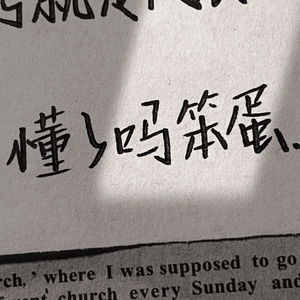 懂了吗笨蛋.
rch,' where I was supposed to go
church every Sunday and